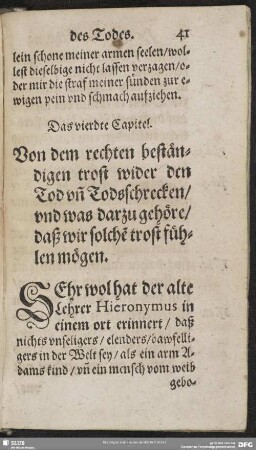 des Todes. 41
lein schone meiner armen seelen/wol-
lest dieselbige nicht lassen verzagen/o-
der mir die straf meiner sünden zur e-
wigen pein vnd schmach aufziehen.
Das vierdte Capitel.
Von dem rechten bestän-
digen trost wider den
Tod vñ Todsschrecken/
vnd was darzu gehöre/
daß wir solchẽ trost füh-
len mögen.
SEhr wol hat der alte
Lehrer Hieronymus in
einem ort erinnert/ daß
nichts vnseligers/ elenders/ bawfelli-
gers in der Welt sey/ als ein arm A-
dams kind/ vñ ein mensch vom weib
gebo-
SLUB
DFG